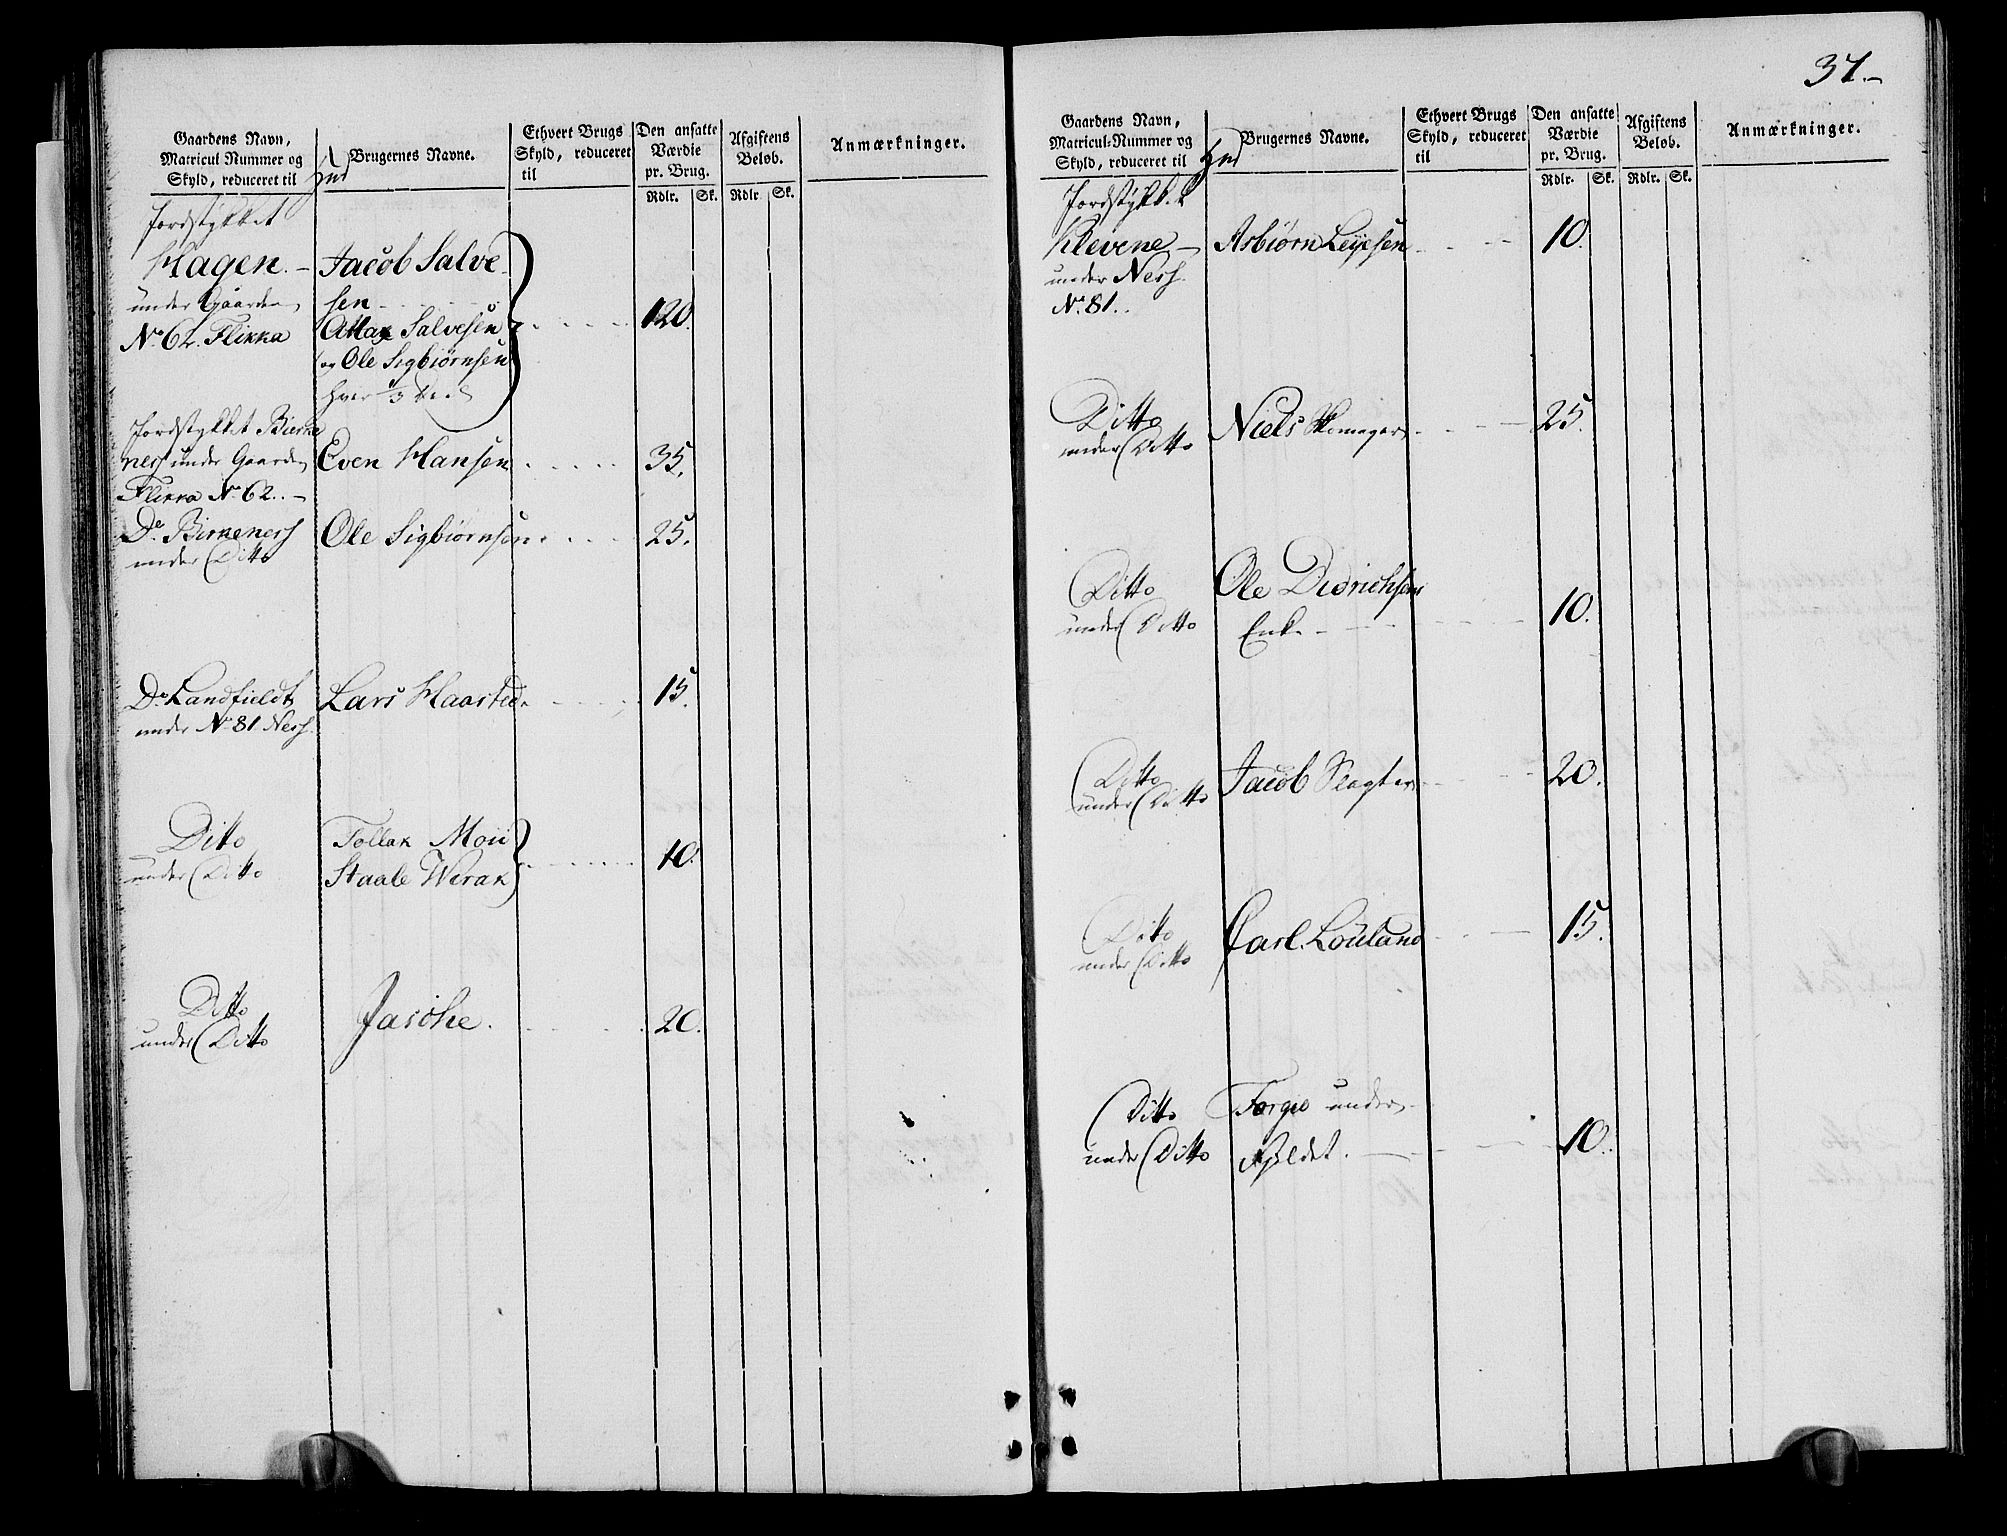 Gaardens Navn,
Matricul Nummer og
Skyld, reduceret til
Hud
Brugernes Navne.
Ethvert Brugs
Skyld, reduceret
til
Den ansatte
Værdie
pr. Brug.
Rdlr. Sk.
Afgiftens
Beløb.
Rdlr Sk.
Anmærkninger.
Jordstykket
Hagen. – Jacob Salve
under Gaarden sen
No 62. Flikka Attax Salvesen 120.
og Ole Sigbiørnsen
hver 1/3 Deel
Jordstykket Birke
ness under Gaarden Even Hansen 35.
Flikka No 62. –
Do Birkeness Ole Sigbiørnsen 25.
under Ditto
Do Landfieldt Lars Haasted 15.
under No 81 Ness
Ditto Tollak Moii
under Ditto Staale Werak 10.
Ditto Jasohe. 20.
under Ditto
37.–
Gaardens Navn,
Matricul-Nummer og
Skyld, reduceret til
Hud
Brugernes Navne.
Ethvert Brugs
Skyld, reduceret
til
Den ansatte
Værdie
pr. Brug.
Rdlr. Sk.
Afgiftens
Beløb.
Rdlr. Sk.
Anmærkninger.
Jordstykket
Klevene – Asbiørn Leyesen 10.
under Ness
No. 81.
Ditto Niels Skomager 25.
under Ditto
Ditto Ole Didrichsens
under Ditto Enke 10.
Ditto Jacob Slagter 20.
under Ditto
Ditto Carl Louland 15.
under Ditto
Ditto Torgio under
under Ditto Fjeldet. 10.